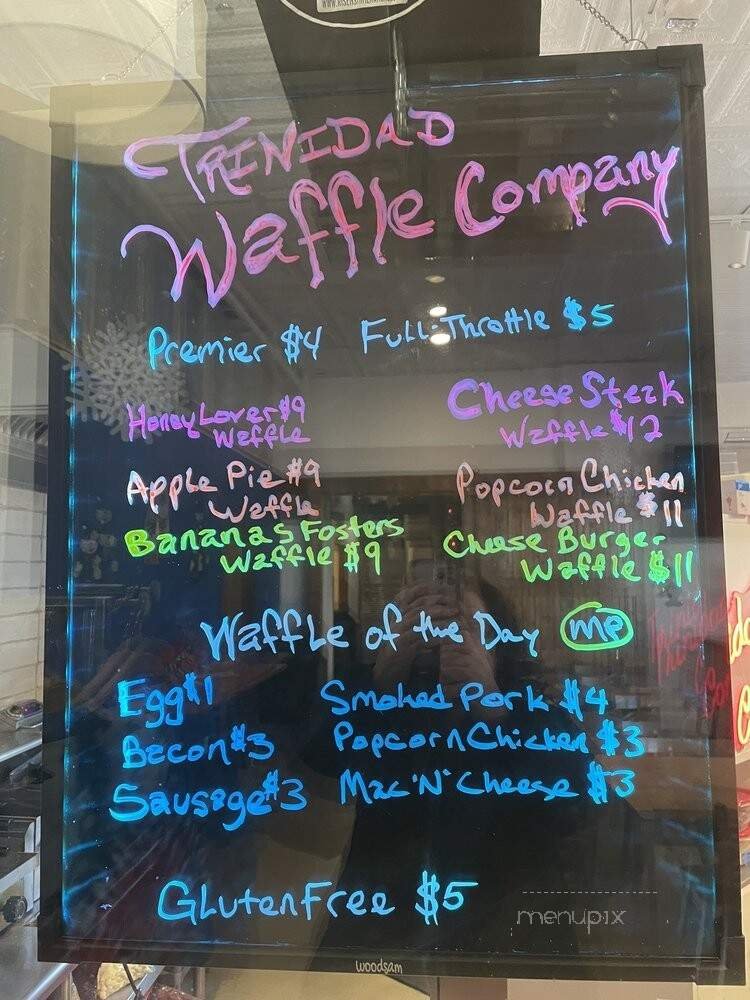 TRINIDAD
Waffle Company
Premier $4 Full-Throttle $5
Honey Lover $9
Waffle
Cheese Steak
Waffle $12
Apple Pie $9
Waffle
Popcorn Chicken
Waffle $11
Bananas Fosters
Waffle $9
Cheese Burger
Waffle $11
Waffle of the Day me
Egg $1
Smoked Pork $4
Bacon $3
Popcorn Chicken $3
Sausage $3
Mac 'N' Cheese $3
Gluten Free $5
menupix
woodsam